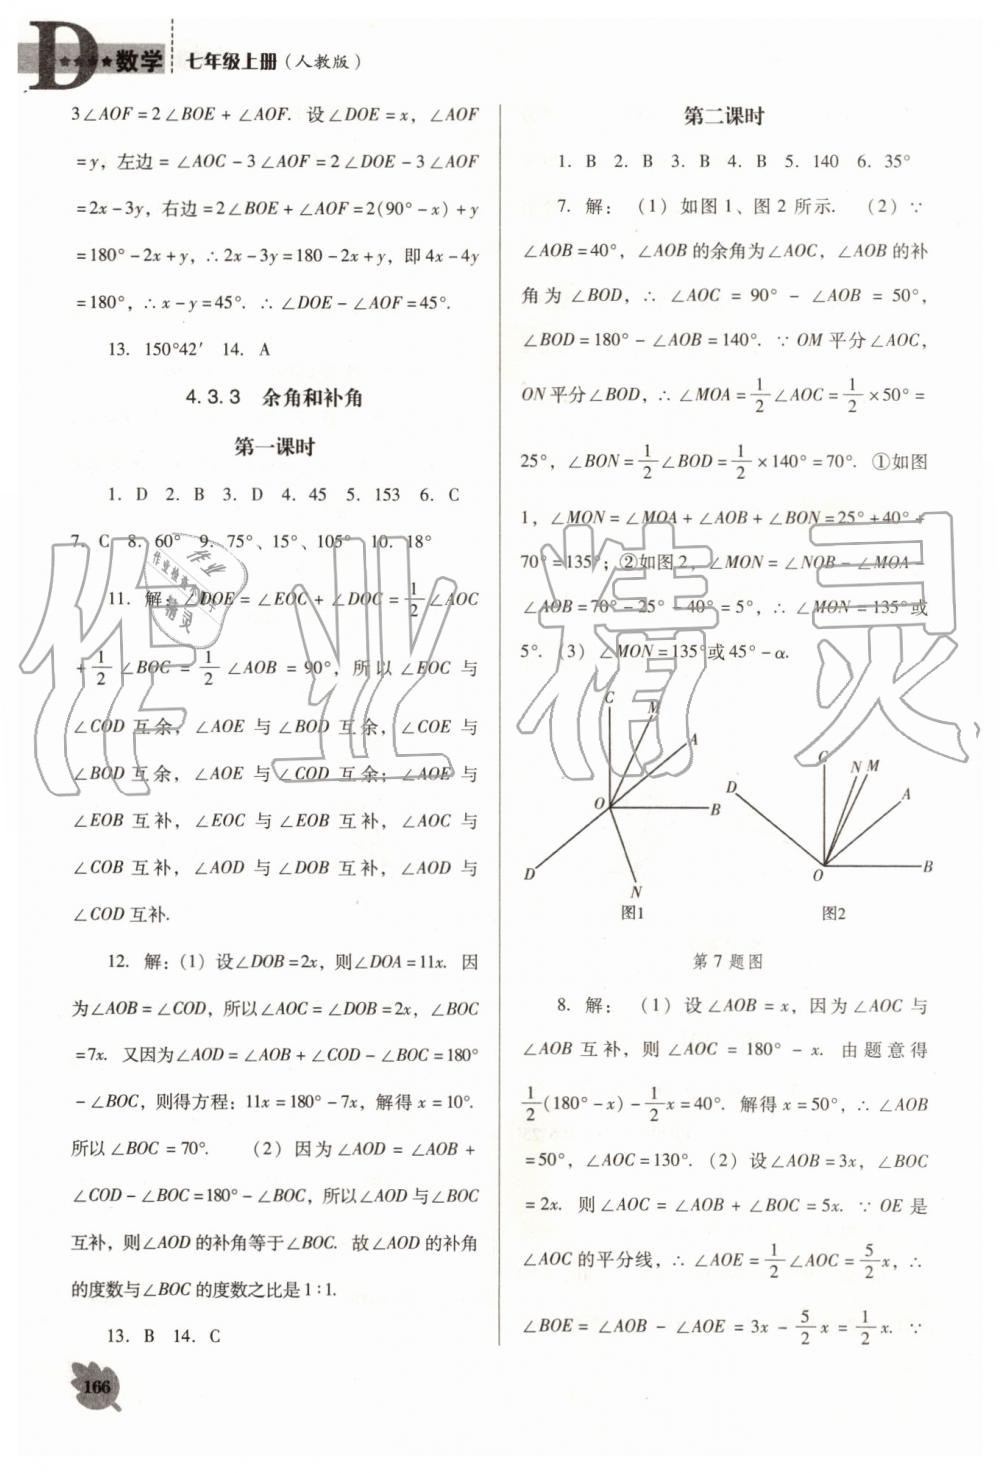 D★★★★数学 七年级上册(人教版)
3∠AOF=2∠BOE+∠AOF. 设∠DOE=x，∠AOF
=y，左边=∠AOC-3∠AOF=2∠DOE-3∠AOF
=2x-3y，右边=2∠BOE+∠AOF=2(90°-x)+y
=180°-2x+y，∴2x-3y=180-2x+y，即4x-4y
=180°，∴x-y=45°. ∴∠DOE-∠AOF=45°.
13. 150°42′ 14. A
4.3.3 余角和补角
第一课时
1. D 2. B 3. D 4. 45 5. 153 6. C
7. C 8. 60° 9. 75°、15°、105° 10. 18°
11. 解：∠DOE=∠EOC+∠DOC=1/2∠AOC
+1/2∠BOC=1/2∠AOB=90°，所以∠EOC与
∠COD互余，∠AOE与∠BOD互余，∠COE与
∠BOD互余，∠AOE与∠COD互余；∠AOE与
∠EOB互补，∠EOC与∠EOB互补，∠AOC与
∠COB互补，∠AOD与∠DOB互补，∠AOD与
∠COD互补.
12. 解：(1)设∠DOB=2x，则∠DOA=11x. 因
为∠AOB=∠COD，所以∠AOC=∠DOB=2x，∠BOC
=7x. 又因为∠AOD=∠AOB+∠COD-∠BOC=180°
-∠BOC，则得方程：11x=180°-7x，解得x=10°.
所以∠BOC=70°. (2)因为∠AOD=∠AOB+
∠COD-∠BOC=180°-∠BOC，所以∠AOD与∠BOC
互补，则∠AOD的补角等于∠BOC. 故∠AOD的补角
的度数与∠BOC的度数之比是1∶1.
13. B 14. C
166
第二课时
1. B 2. B 3. B 4. B 5. 140 6. 35°
7. 解：(1)如图1、图2所示. (2)∵
∠AOB=40°，∠AOB的余角为∠AOC，∠AOB的补
角为∠BOD，∴∠AOC=90°-∠AOB=50°，
∠BOD=180°-∠AOB=140°. ∵OM平分∠AOC，
ON平分∠BOD，∴∠MOA=1/2∠AOC=1/2×50°=
25°，∠BON=1/2∠BOD=1/2×140°=70°. ①如图
1，∠MON=∠MOA+∠AOB+∠BON=25°+40°+
70°=135°；②如图2，∠MON=∠NOB-∠MOA-
∠AOB=70°-25°-40°=5°，∴∠MON=135°或
5°. (3)∠MON=135°或45°-α.
C M A O B D N
图1
C N M D A O B
图2
第7题图
8. 解：(1)设∠AOB=x，因为∠AOC与
∠AOB互补，则∠AOC=180°-x. 由题意得
1/2(180°-x)-1/2x=40°. 解得x=50°，∴∠AOB
=50°，∠AOC=130°. (2)设∠AOB=3x，∠BOC
=2x. 则∠AOC=∠AOB+∠BOC=5x. ∵OE是
∠AOC的平分线，∴∠AOE=1/2∠AOC=5/2x，∴
∠BOE=∠AOB-∠AOE=3x-5/2x=1/2x. ∵
作业精灵
作业
作业检查小助手
精灵